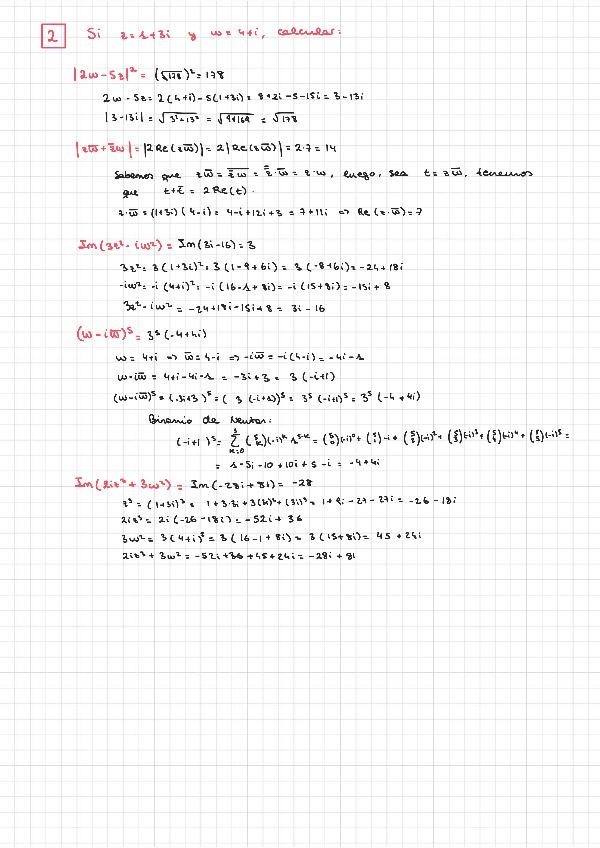 2 Si z=1+3i y w=4+i, calcular:
|2w-5z|² = (√178)² = 178
2w-5z = 2(4+i)-5(1+3i) = 8+2i-5-15i = 3-13i
|3-13i| = √3²+13² = √9+169 = √178
|zw̅+z̅w| = |2Re(zw̅)| = 2|Re(zw̅)| = 2·7 = 14
Sabemos que luego, sea t=zw̅, tenemos
que t+t̅ = 2Re(t).
z·w̅ = (1+3i)(4-i) = 4-i+12i+3 = 7+11i => Re(z·w̅) = 7
Im(3z²-iw²) = Im(3i-16) = 3
3z² = 3(1+3i)² = 3(1-9+6i) = 3(-8+6i) = -24+18i
-iw² = -i(4+i)² = -i(16-1+8i) = -i(15+8i) = -15i+8
3z²-iw² = -24+18i-15i+8 = 3i-16
(w-iw̅)⁵ = 3⁵(-4+4i)
w = 4+i => w̅ = 4-i => -iw̅ = -i(4-i) = -4i-1
w-iw̅ = 4+i-4i-1 = -3i+3 = 3(-i+1)
(w-iw̅)⁵ = (-3i+3)⁵ = (3(-i+1))⁵ = 3⁵(-i+1)⁵ = 3⁵(-4+4i)
Binomio de Newton:
(-i+1)⁵ = ∑ₖ₌₀⁵ (5 k)(-i)ᵏ 1⁵⁻ᵏ = (5 0)(-i)⁰ + (5 1)·-i + (5 2)(-i)² + (5 3)(-i)³ + (5 4)(-i)⁴ + (5 5)(-i)⁵ =
= 1-5i-10+10i+5-i = -4+4i
Im(2iz³+3w²) = Im(-28i+81) = -28
z³ = (1+3i)³ = 1+3·3i+3(3i)²+(3i)³ = 1+9i-27-27i = -26-18i
2iz³ = 2i(-26-18i) = -52i+36
3w² = 3(4+i)² = 3(16-1+8i) = 3(15+8i) = 45+24i
2iz³+3w² = -52i+36+45+24i = -28i+81